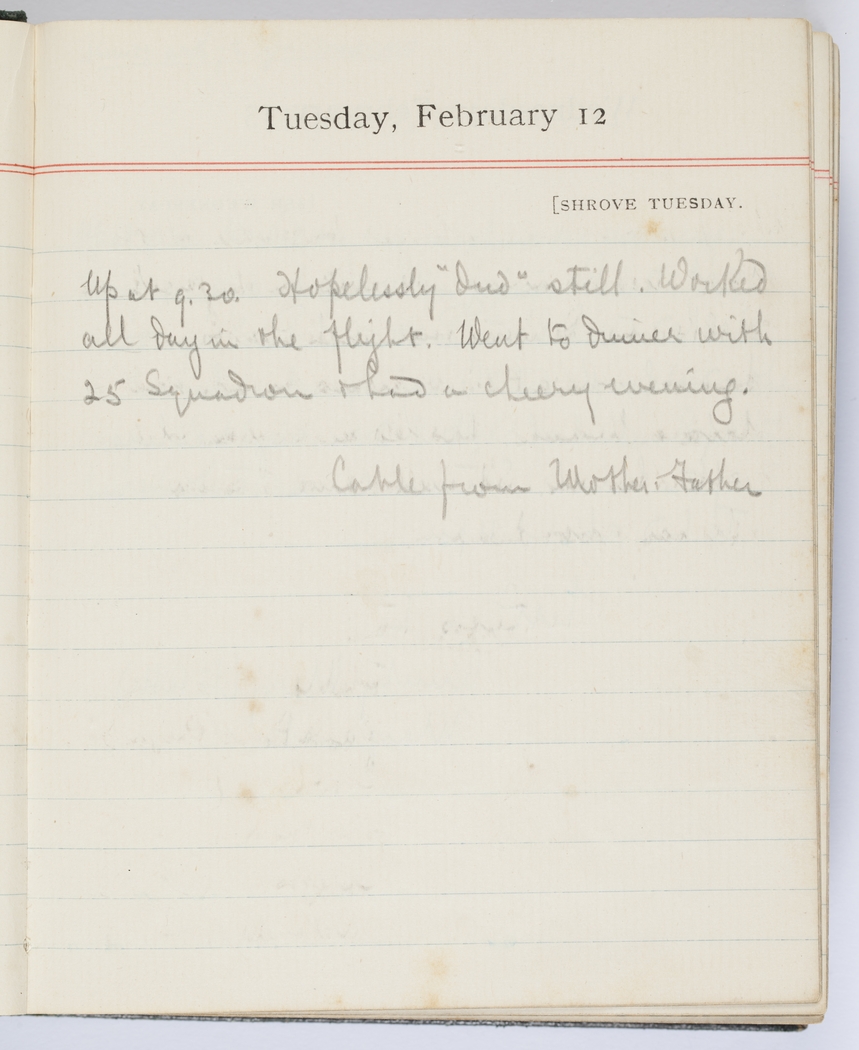 Tuesday, February 12
[SHROVE TUESDAY.
Up at 9.30. Hopelessly "dud" still. Worked
all day in the flight. Went to dinner with
25 Squadron & had a cheery evening.
Cable from Mother & Father